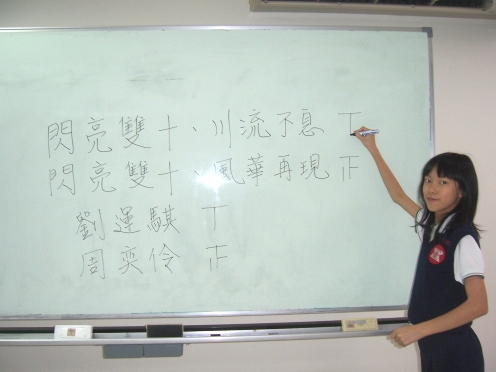 閃亮雙十、川流不息 丅
閃亮雙十、風華再現 正
劉運騏 丅
周奕伶 正